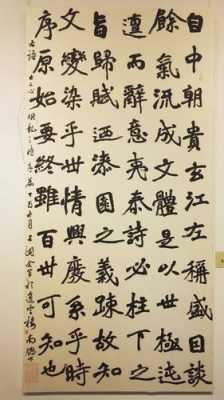 自中朝貴玄江左稱盛因談
餘氣流成文體是以世極迍
邅而辭意夷泰詩必柱下之
旨歸賦迺漆園之義疎故知
文變染乎世情興廢系乎時
序原始要終雖百世可知也